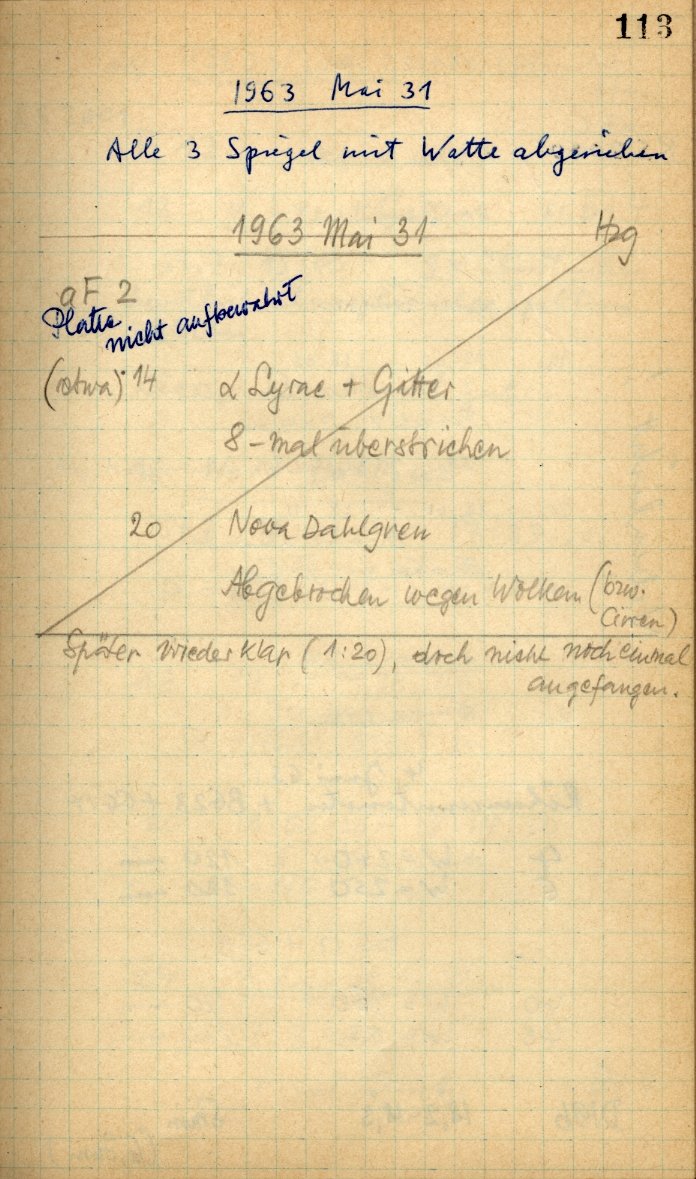 113
1963 Mai 31
Alle 3 Spiegel mit Watte abgerieben
1963 Mai 31 Hzg
aF 2
Platte
nicht aufbewahrt
(etwa) 14 α Lyrae + Gitter
8-mal überstrichen
20 Nova Dahlgren
Abgebrochen wegen Wolken (bzw.
Cirren)
Später wieder klar (1:20), doch nicht noch einmal
angefangen.